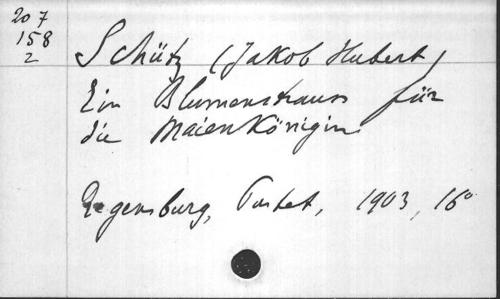 207
158
2
Schütz (Jakob Hubert)
Ein Blumenstrauss für
die Maienkönigin.
Regensburg, Pustet, 1903, 16°